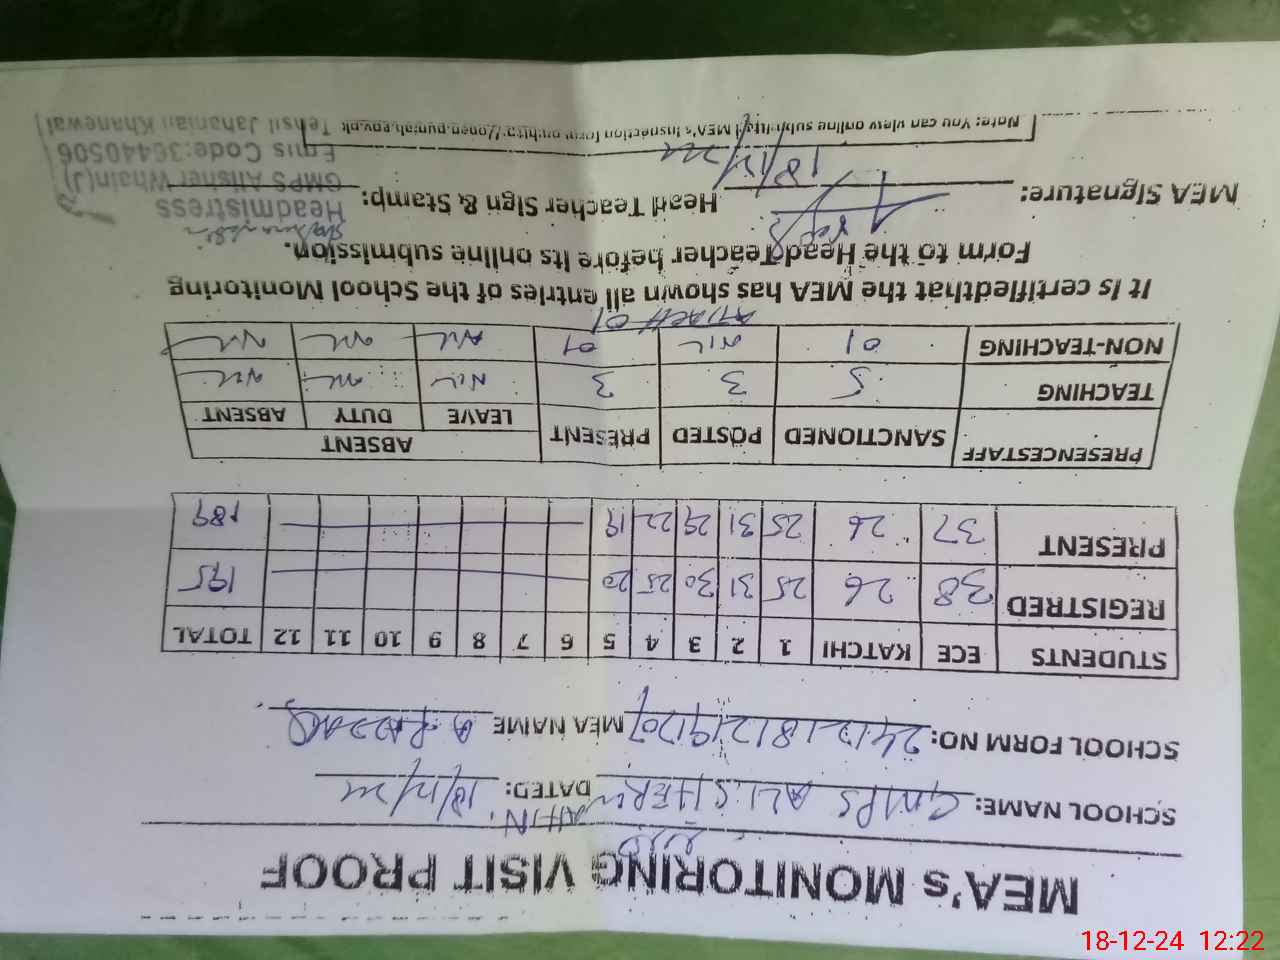 MEA's MONITORING VISIT PROOF
SCHOOL NAME: GMPS ALISHER WAHIN. DATED: 18/12/24
SCHOOL FORM NO: MEA NAME
STUDENTS ECE KATCHI 1 2 3 4 5 6 7 8 9 10 11 12 TOTAL
REGISTRED 38 26 25 31 30 25 20 195
PRESENT 37 26 25 31 29 22 19 189
PRESENCESTAFF SANCTIONED POSTED PRESENT ABSENT
LEAVE DUTY ABSENT
TEACHING 5 3 3 NIL NIL NIL
NON-TEACHING 01 NIL 01 NIL NIL NIL
ATTACH 01
It is certifiedthat the MEA has shown all entries of the School Monitoring
Form to the Head Teacher before its online submission.
MEA Signature: Head Teacher Sign & Stamp:
18/12/24
Headmistress
GMPS Alisher Whain(J)
Emis Code:36440506
Tehsil Jahanian Khanewal
Note: You can view online submitted MEA's inspection form on:http://open.punjab.gov.pk
18-12-24 12:22